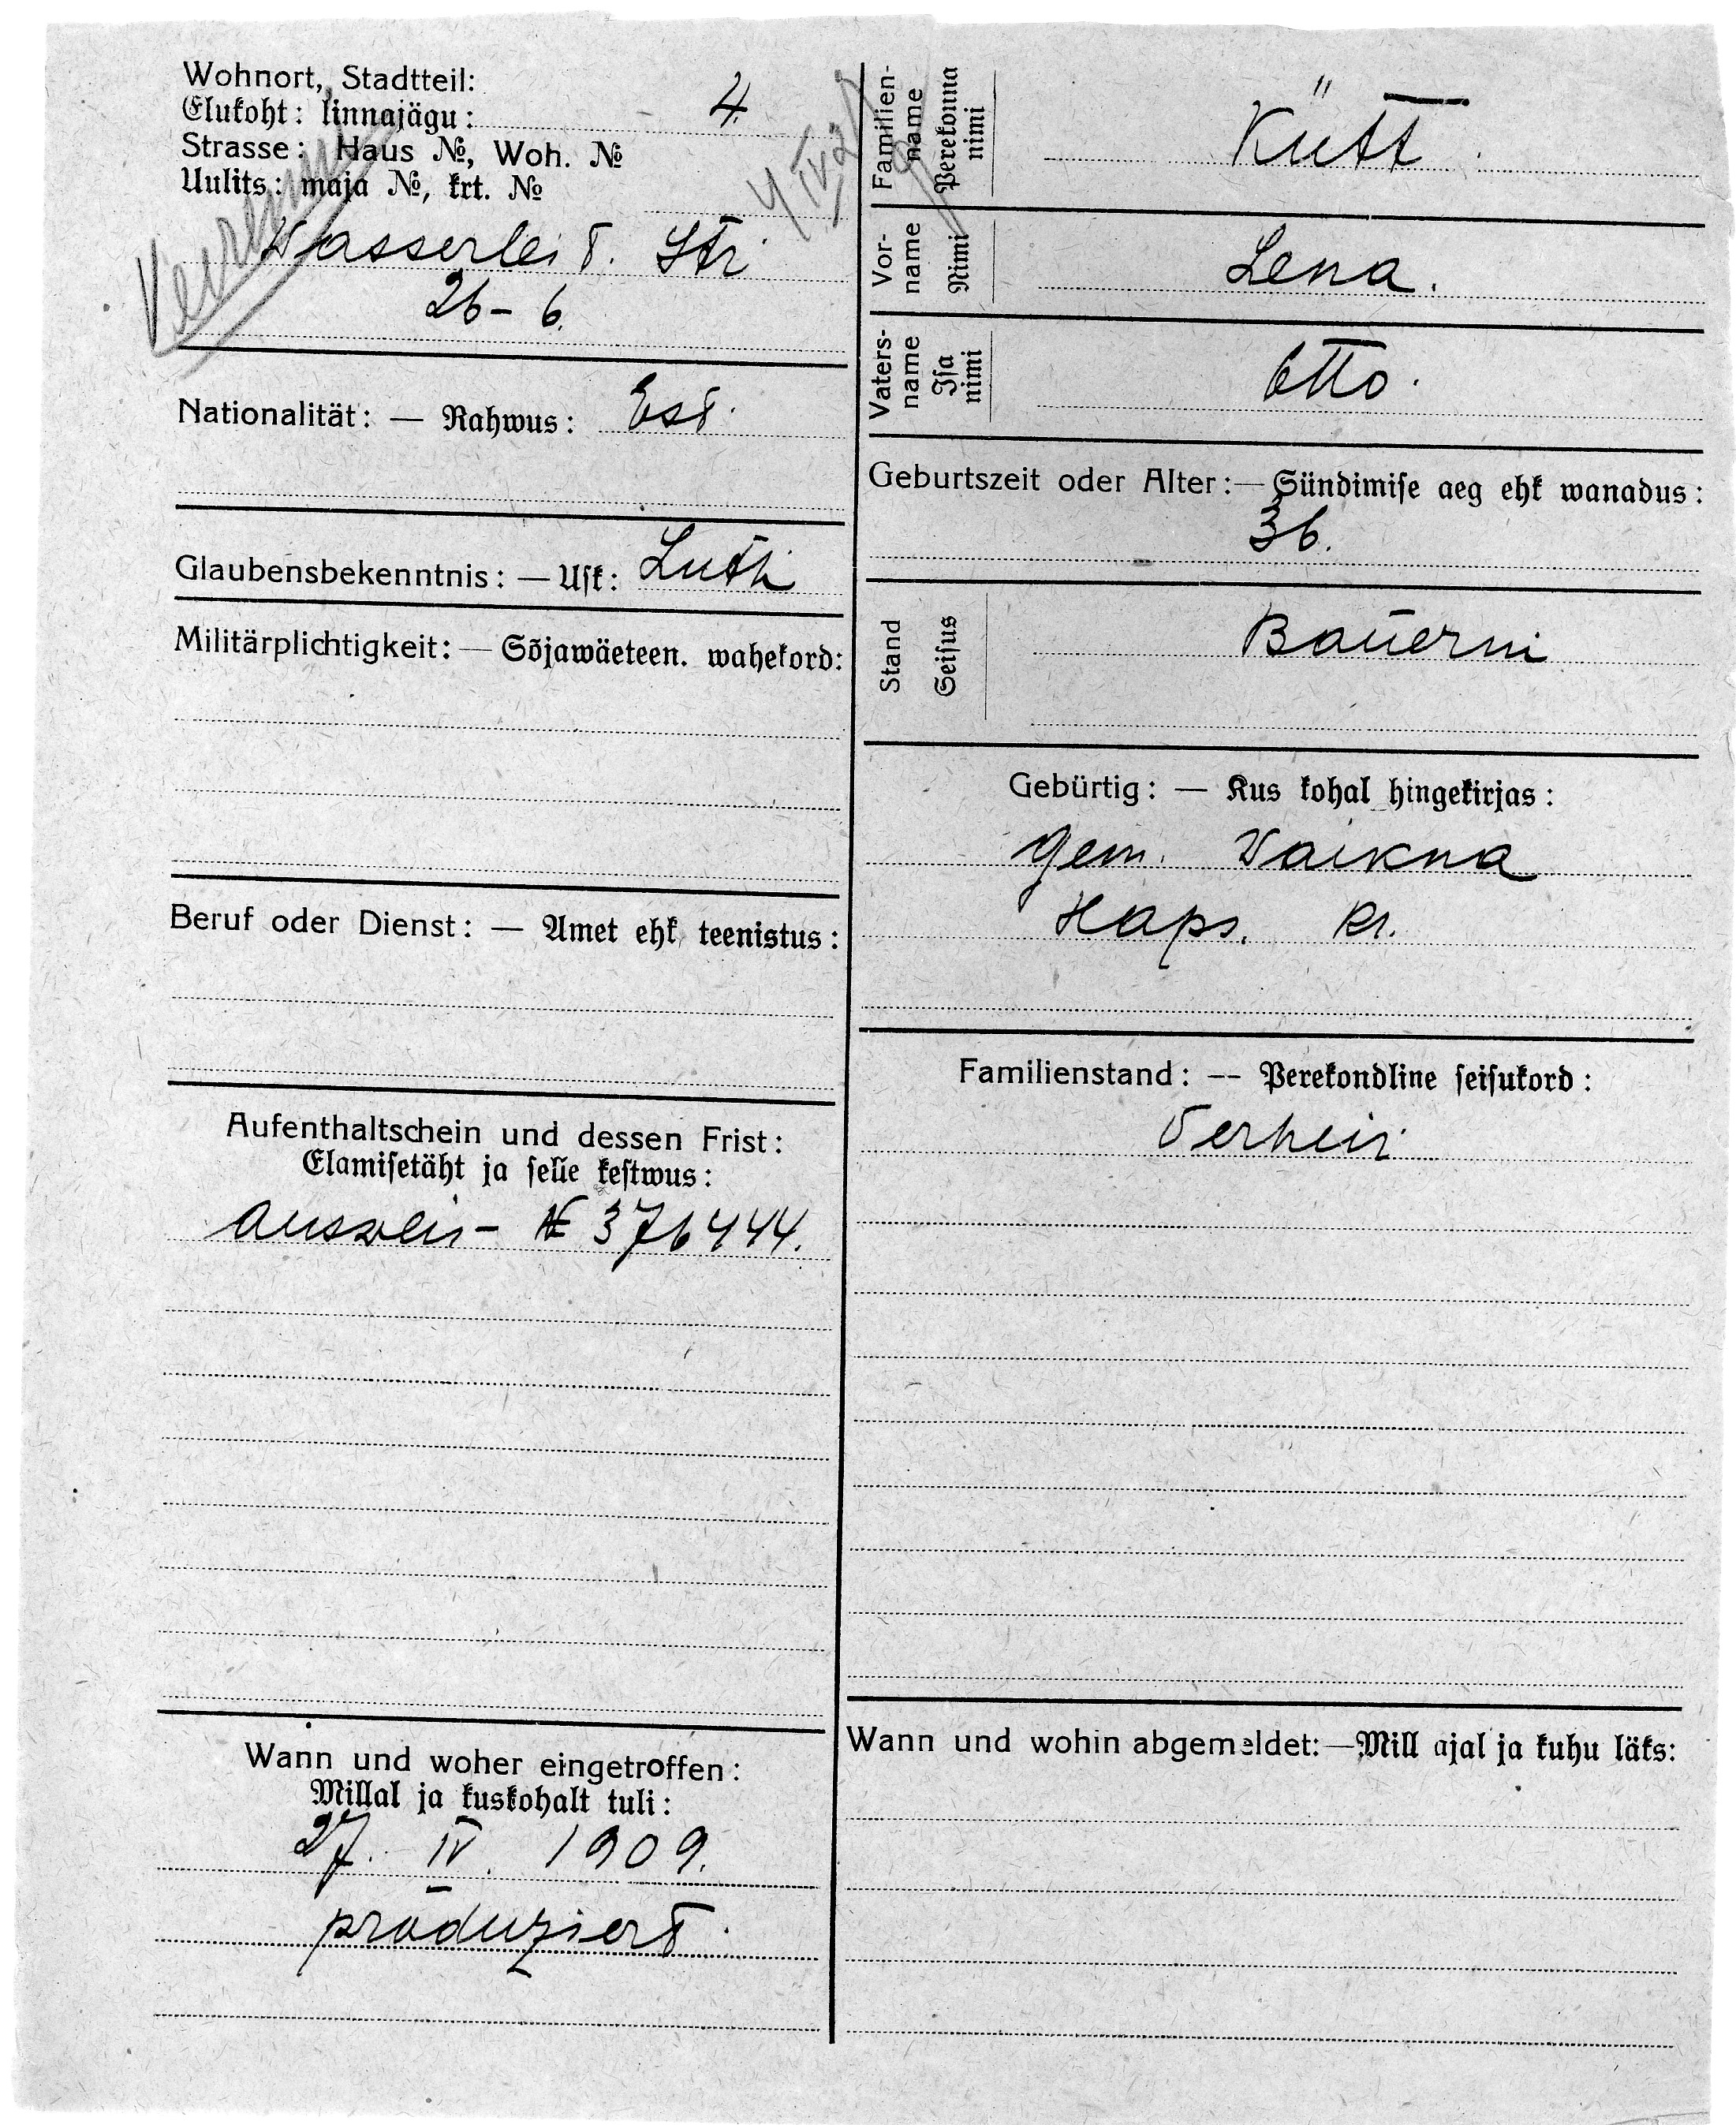 Wohnort, Stadtteil:
Elukoht: linnajägu: 4.
Strasse: Haus №, Woh. №
Uulits: maja №, krt. №
Wasserleit. Str.
26 - 6.
Nationalität: — Rahwus: Est.
Glaubensbekenntnis: — Usk: Luth
Militärplichtigkeit: — Sõjawäeteen. wahekord:
Beruf oder Dienst: — Amet ehk teenistus:
Aufenthaltschein und dessen Frist:
Elamisetäht ja selle kestwus:
Ausweis - № 376444.
Wann und woher eingetroffen:
Millal ja kuskohalt tuli:
27. IV. 1909.
produziert.
Familien-name Perekonna nimi Kütt
Vor-name Nimi Lena.
Vaters-name Isa nimi Otto.
Geburtszeit oder Alter: — Sündimise aeg ehk wanadus:
36.
Stand Seisus Bäuerin
Gebürtig: — Kus kohal hingekirjas:
Gem. Waikna
Haps. Kr.
Familienstand: -- Perekondline seisukord:
Verheir.
Wann und wohin abgemeldet: — Mill ajal ja kuhu läks: